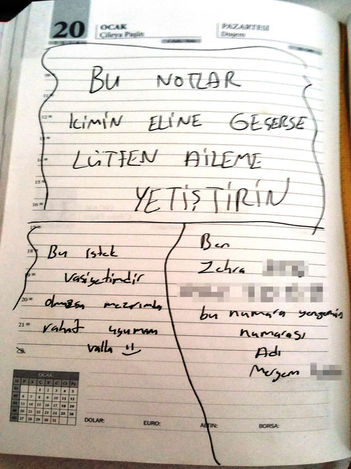 20 OCAK PAZARTESİ
BU NOTLAR
KİMİN ELİNE GEÇERSE
LÜTFEN AİLEME
YETİŞTİRİN
Bu istek
vasiyetimdir
olmazsa mezarımda
rahat uyumam
valla :)
Ben
Zehra
bu numara yengemin
numarası
Adı
Meryem
OCAK
DOLAR: EURO: ALTIN: BORSA: